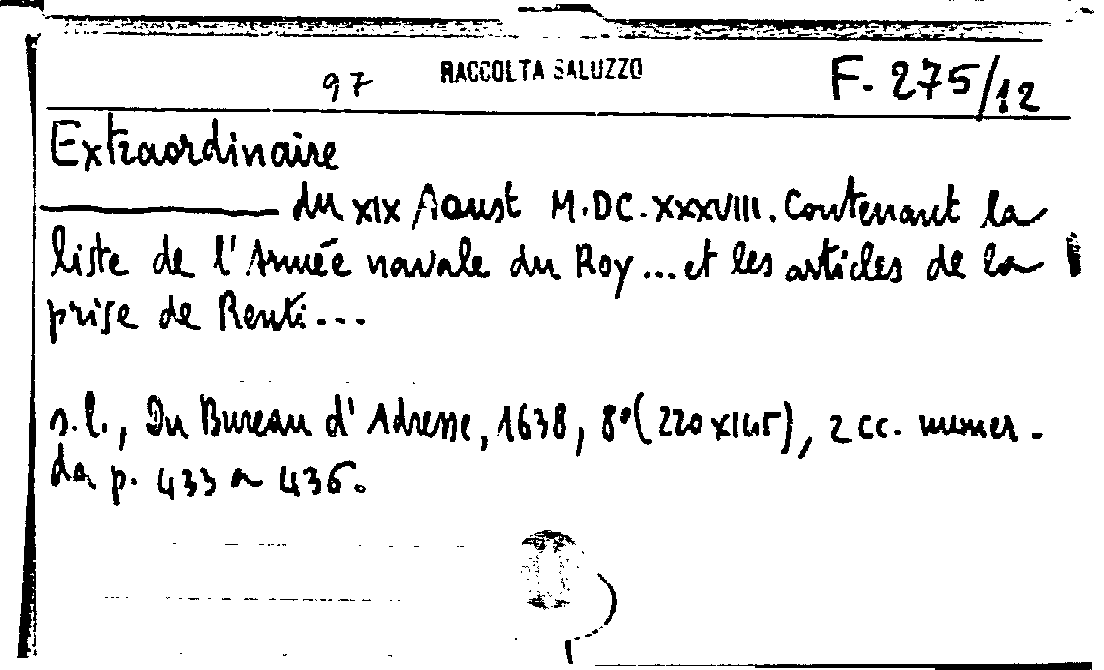 97 RACCOLTA SALUZZO F. 275/12
Extraordinaire
du XIX Aoust M.DC.XXXVIII. Contenant la
liste de l'Armée navale du Roy... et les articles de la
prise de Renti...
s.l., Du Bureau d'Adresse, 1638, 8°(220x145), 2 cc. numer.
da p. 433 a 436.